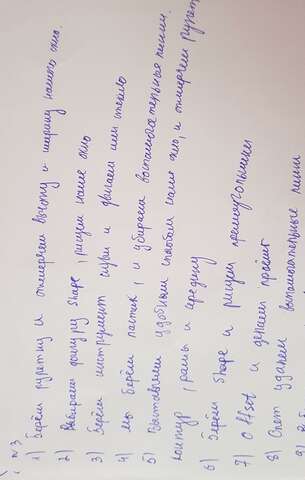 №3
1) Берём рулетку и отмеряем высоту и ширину нашего окна.
2) Выбираем фигуру Shape, рисуем наше окно
3) Берём инструмент и двигаем или стекло
4) мы берём ластик, и убираем вспомогательные линии.
5) Выставляем удобным способом наше окно, и отмеряем рулет
контур рамы и середину
6) Берём Shape и рисуем прямоугольники
7) Offset и делаем проём
8) Счет удаляем вспомогательные линии
9)